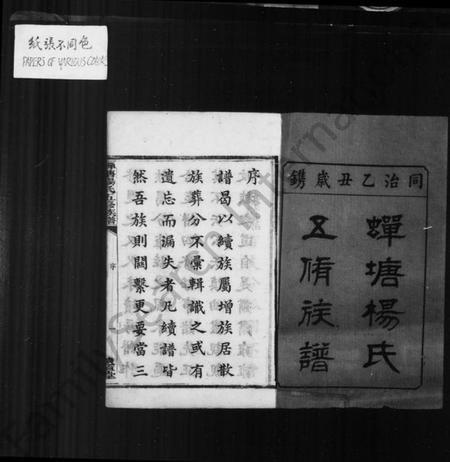 紙張不同色
PAPERS OF VARIOUS COLOR
同治乙丑歲鐫
蟬塘楊氏
五脩族譜
序
譜曷以續族屬增族居散
族葬分不彙輯識之或有
遺忘而漏失者凡續譜皆
然吾族則關繫更要當三
序